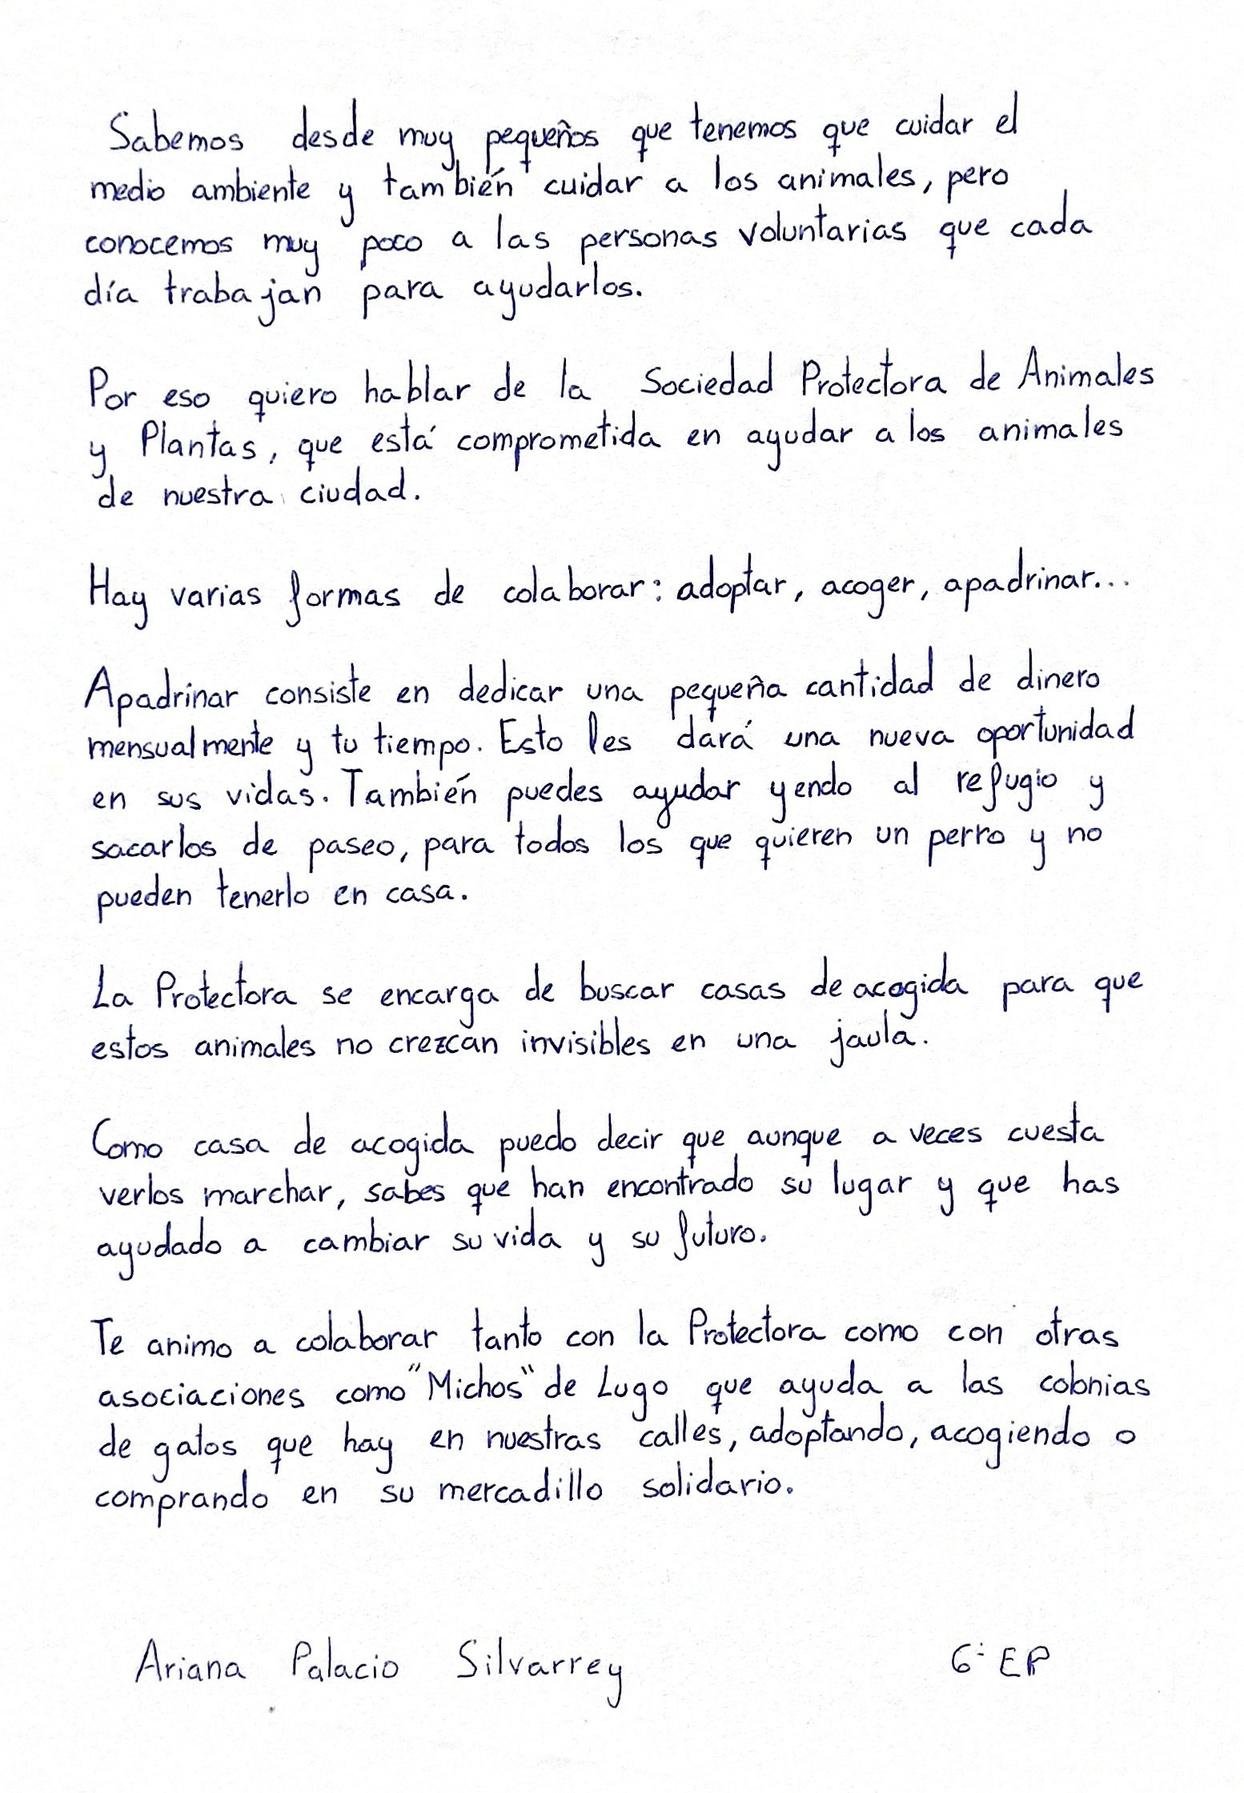 Sabemos desde muy pequeños que tenemos que cuidar el
medio ambiente y también cuidar a los animales, pero
conocemos muy poco a las personas voluntarias que cada
día trabajan para ayudarlos.
Por eso quiero hablar de la Sociedad Protectora de Animales
y Plantas, que está comprometida en ayudar a los animales
de nuestra ciudad.
Hay varias formas de colaborar: adoptar, acoger, apadrinar...
Apadrinar consiste en dedicar una pequeña cantidad de dinero
mensualmente y tu tiempo. Esto les dará una nueva oportunidad
en sus vidas. También puedes ayudar yendo al refugio y
sacarlos de paseo, para todos los que quieren un perro y no
pueden tenerlo en casa.
La Protectora se encarga de buscar casas de acogida para que
estos animales no crezcan invisibles en una jaula.
Como casa de acogida puedo decir que aunque a veces cuesta
verlos marchar, sabes que han encontrado su lugar y que has
ayudado a cambiar su vida y su futuro.
Te animo a colaborar tanto con la Protectora como con otras
asociaciones como "Michos" de Lugo que ayuda a las colonias
de gatos que hay en nuestras calles, adoptando, acogiendo o
comprando en su mercadillo solidario.
Ariana Palacio Silvarrey 6º EP